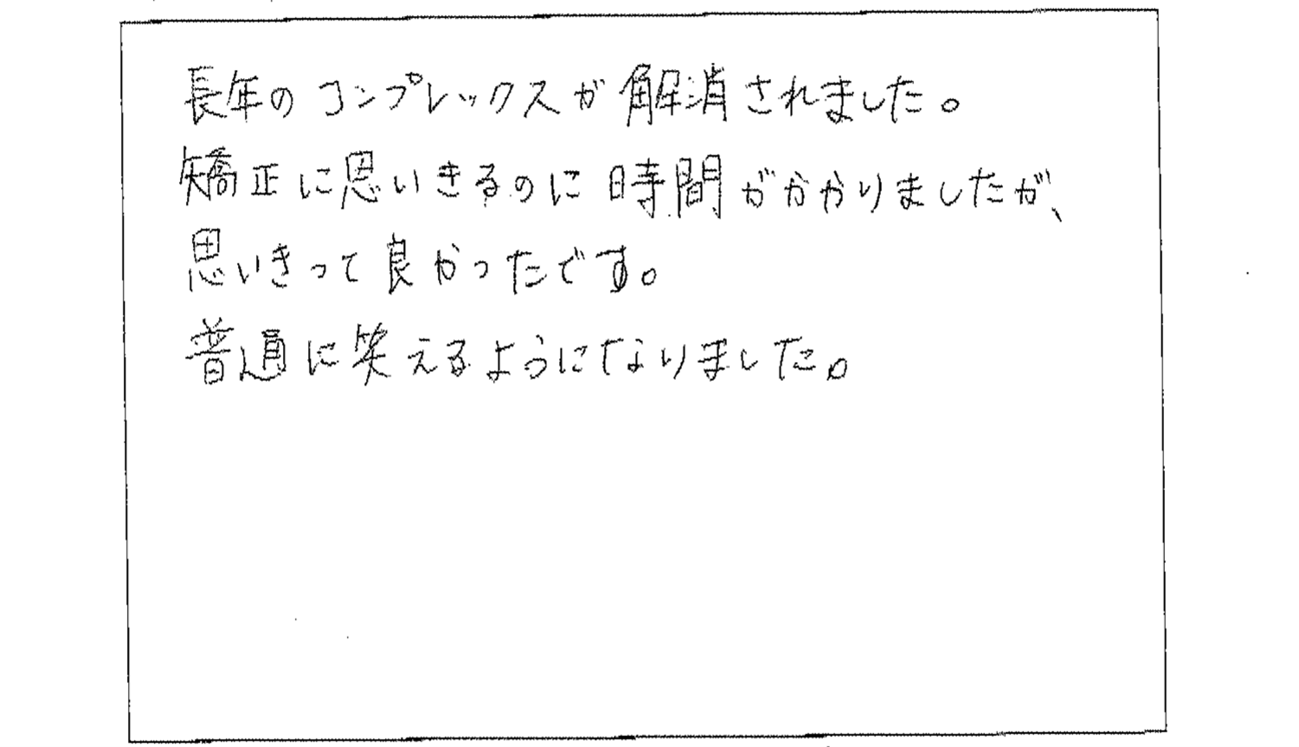 長年のコンプレックスが解消されました。
矯正に思いきるのに時間がかかりましたが、
思いきって良かったです。
普通に笑えるようになりました。